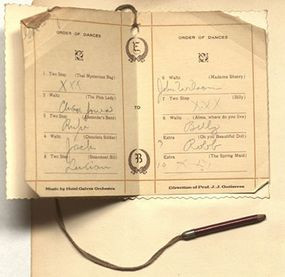 ORDER OF DANCES
1 Two Step (That Mysterious Rag)
XXX
2 Waltz (The Pink Lady)
3 Two Step
4 Waltz (Chocolate Soldier)
Jack
5 Two Step
Lucian
Music by Hotel Galvez Orchestra
E
TO
B
ORDER OF DANCES
6 Waltz (Madame Sherry)
John Wilson
7 Two Step (Billy)
XXX
8 Waltz (Alma, where do you live)
Billy
Extra (Oh you Beautiful Doll)
Robb
Extra (The Spring Maid)
Direction of Prof. J. J. Gutierrez